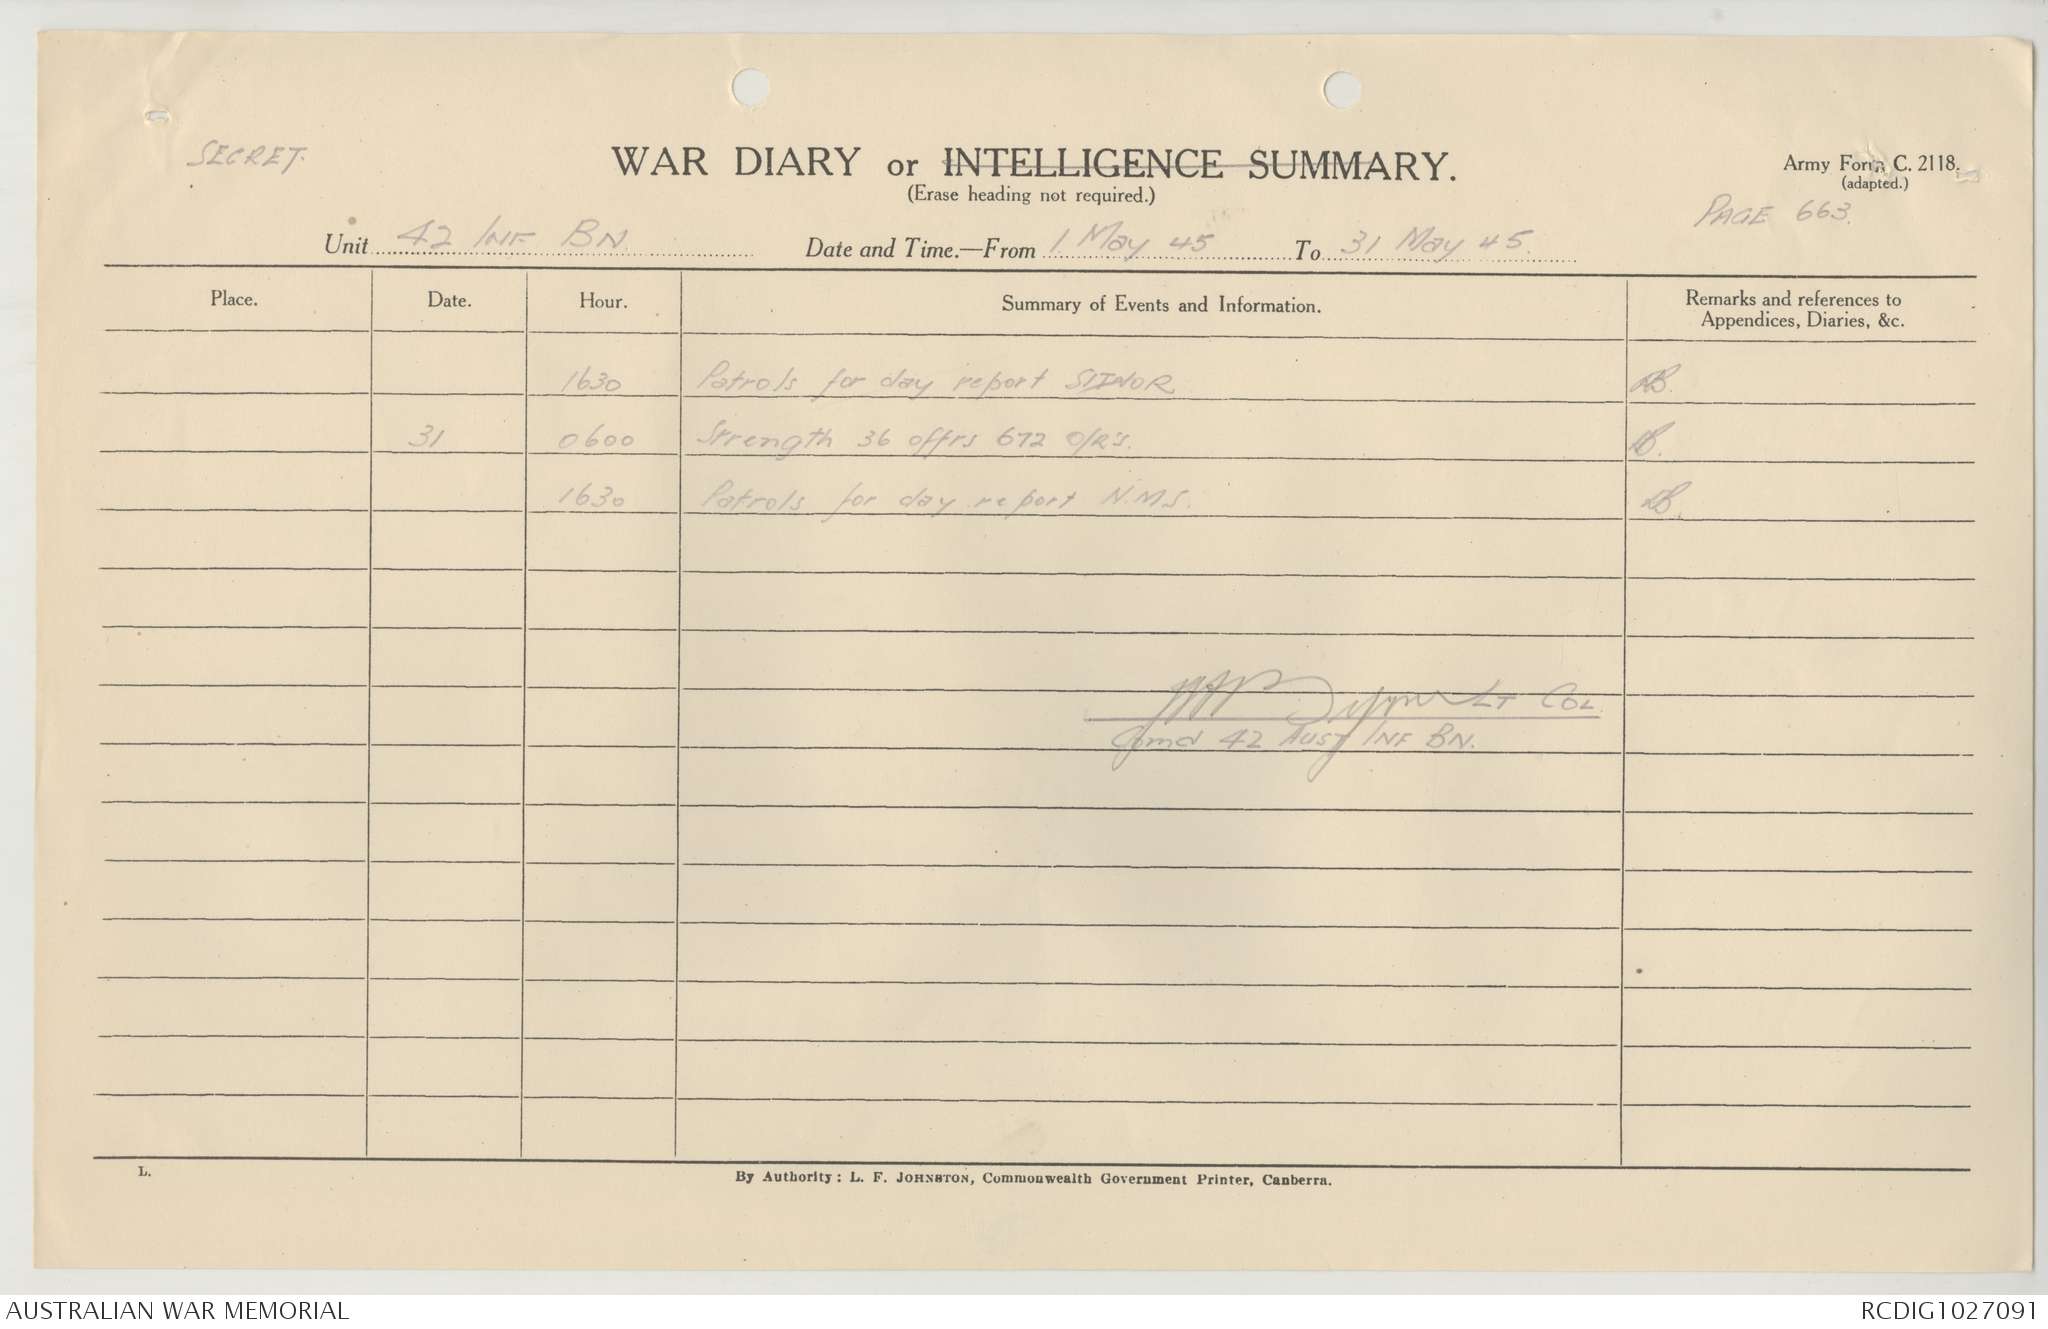 SECRET.
WAR DIARY or INTELLIGENCE SUMMARY.
(Erase heading not required.)
Army Form C. 2118.
(adapted.)
PAGE 663.
Unit 42 INF BN. Date and Time.—From 1 May 45 To 31 May 45.
Place. Date. Hour. Summary of Events and Information. Remarks and references to Appendices, Diaries, &c.
1630 Patrols for day report
31 0600 Strength 36 offrs 672 O/R's.
1630 Patrols for day report N.M.S.
LT COL
Comd 42 AUST INF BN.
L.
By Authority: L. F. JOHNSTON, Commonwealth Government Printer, Canberra.
AUSTRALIAN WAR MEMORIAL
RCDIG1027091